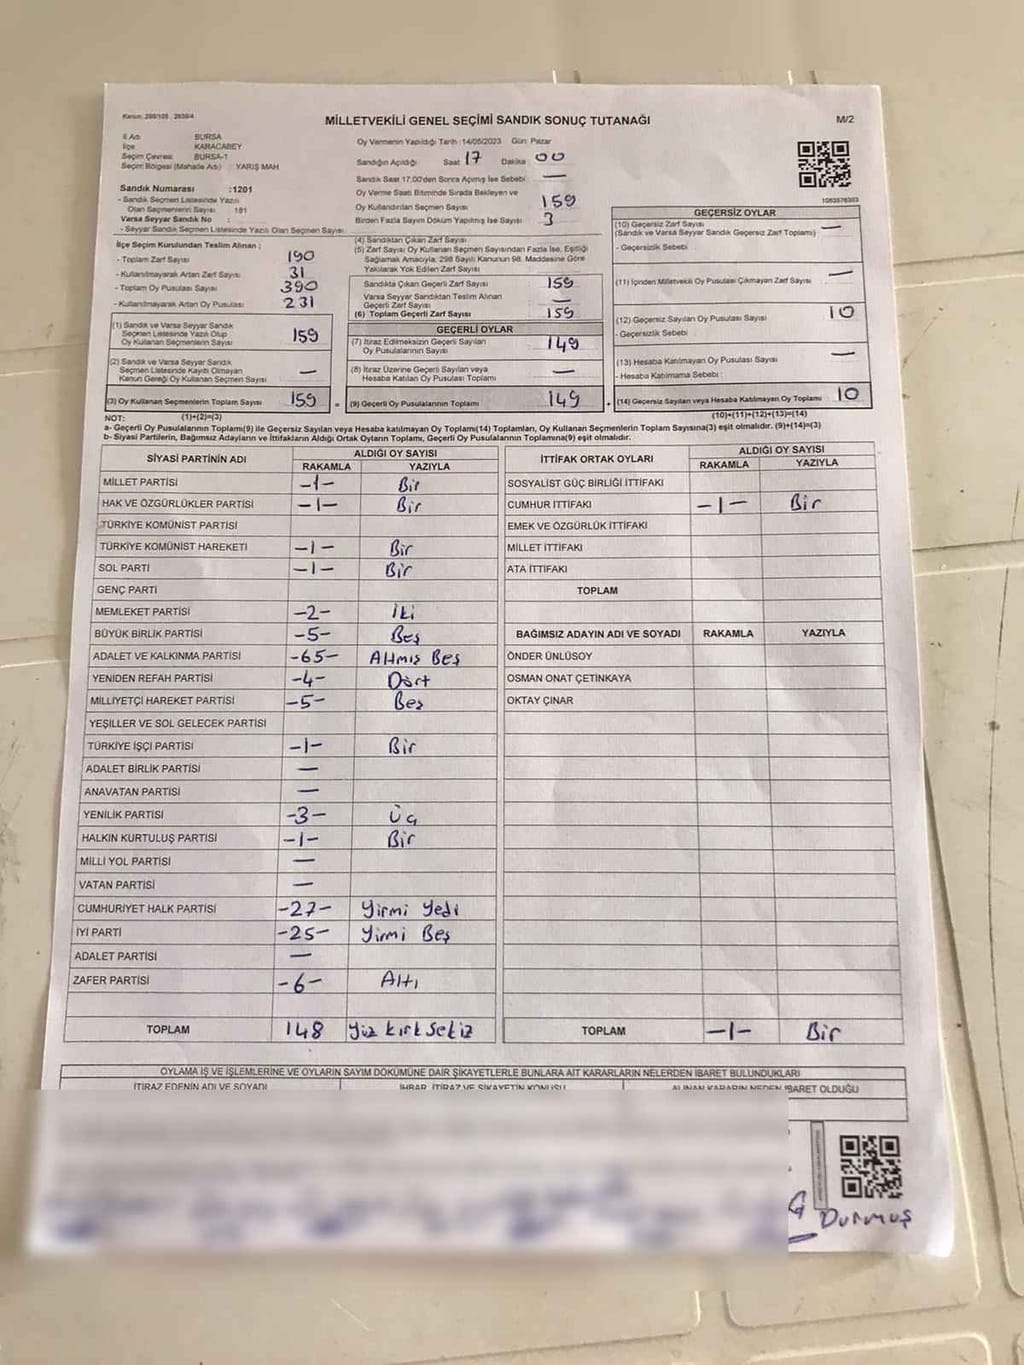 Kanun: 298/105 , 2839/4
MİLLETVEKİLİ GENEL SEÇİMİ SANDIK SONUÇ TUTANAĞI
M/2
İl Adı BURSA
İlçe KARACABEY
Seçim Çevresi BURSA-1
Seçim Bölgesi (Mahalle Adı) : YARIŞ MAH
Sandık Numarası :1201
- Sandık Seçmen Listesinde Yazılı
Olan Seçmenlerin Sayısı 181
Varsa Seyyar Sandık No :
- Seyyar Sandık Seçmen Listesinde Yazılı Olan Seçmen Sayısı
Oy Vermenin Yapıldığı Tarih : 14/05/2023 Gün: Pazar
Sandığın Açıldığı Saat 17 Dakika 00
Sandık Saat 17.00'den Sonra Açmış İse Sebebi —
Oy Verme Saati Bitiminde Sırada Bekleyen ve
Oy Kullandırılan Seçmen Sayısı 159
Birden Fazla Sayım Döküm Yapılmış İse Sayısı 3
İlçe Seçim Kurulundan Teslim Alınan ;
- Toplam Zarf Sayısı 190
- Kullanılmayarak Artan Zarf Sayısı 31
- Toplam Oy Pusulası Sayısı 390
- Kullanılmayarak Artan Oy Pusulası 231
(1) Sandık ve Varsa Seyyar Sandık
Seçmen Listesinde Yazılı Olup
Oy Kullanan Seçmenlerin Sayısı 159
(2) Sandık ve Varsa Seyyar Sandık
Seçmen Listesinde Kayıtlı Olmayan
Kanun Gereği Oy Kullanan Seçmen Sayısı —
(3) Oy Kullanan Seçmenlerin Toplam Sayısı 159
(4) Sandıktan Çıkan Zarf Sayısı
(5) Zarf Sayısı Oy Kullanan Seçmen Sayısından Fazla İse, Eşitliği
Sağlamak Amacıyla; 298 Sayılı Kanunun 98. Maddesine Göre
Yakılarak Yok Edilen Zarf Sayısı
Sandıkta Çıkan Geçerli Zarf Sayısı 159
Varsa Seyyar Sandıktan Teslim Alınan
Geçerli Zarf Sayısı —
(6) Toplam Geçerli Zarf Sayısı 159
GEÇERLİ OYLAR
(7) İtiraz Edilmeksizin Geçerli Sayılan
Oy Pusulalarının Sayısı 149
(8) İtiraz Üzerine Geçerli Sayılan veya
Hesaba Katılan Oy Pusulası Toplamı —
= (9) Geçerli Oy Pusulalarının Toplamı 149
GEÇERSİZ OYLAR
(10) Geçersiz Zarf Sayısı
(Sandık ve Varsa Seyyar Sandık Geçersiz Zarf Toplamı) —
- Geçersizlik Sebebi :
(11) İçinden Milletvekili Oy Pusulası Çıkmayan Zarf Sayısı —
(12) Geçersiz Sayılan Oy Pusulası Sayısı 10
- Geçersizlik Sebebi :
(13) Hesaba Katılmayan Oy Pusulası Sayısı —
- Hesaba Katılmama Sebebi :
(14) Geçersiz Sayılan veya Hesaba Katılmayan Oy Toplamı 10
NOT: (1)+(2)=(3)
(10)+(11)+(12)+(13)=(14)
a- Geçerli Oy Pusulalarının Toplamı(9) ile Geçersiz Sayılan veya Hesaba katılmayan Oy Toplamı(14) Toplamları, Oy Kullanan Seçmenlerin Toplam Sayısına(3) eşit olmalıdır. (9)+(14)=(3)
b- Siyasi Partilerin, Bağımsız Adayların ve İttifakların Aldığı Ortak Oyların Toplamı, Geçerli Oy Pusulalarının Toplamına(9) eşit olmalıdır.
SİYASİ PARTİNİN ADI ALDIĞI OY SAYISI
RAKAMLA YAZIYLA
MİLLET PARTİSİ -1- Bir
HAK VE ÖZGÜRLÜKLER PARTİSİ -1- Bir
TÜRKİYE KOMÜNİST PARTİSİ
TÜRKİYE KOMÜNİST HAREKETİ -1- Bir
SOL PARTİ -1- Bir
GENÇ PARTİ
MEMLEKET PARTİSİ -2- İki
BÜYÜK BİRLİK PARTİSİ -5- Beş
ADALET VE KALKINMA PARTİSİ -65- Altmış Beş
YENİDEN REFAH PARTİSİ -4- Dört
MİLLİYETÇİ HAREKET PARTİSİ -5- Beş
YEŞİLLER VE SOL GELECEK PARTİSİ
TÜRKİYE İŞÇİ PARTİSİ -1- Bir
ADALET BİRLİK PARTİSİ —
ANAVATAN PARTİSİ —
YENİLİK PARTİSİ -3- Üç
HALKIN KURTULUŞ PARTİSİ -1- Bir
MİLLİ YOL PARTİSİ —
VATAN PARTİSİ —
CUMHURİYET HALK PARTİSİ -27- Yirmi Yedi
İYİ PARTİ -25- Yirmi Beş
ADALET PARTİSİ —
ZAFER PARTİSİ -6- Altı
TOPLAM 148 Yüz kırk sekiz
İTTİFAK ORTAK OYLARI ALDIĞI OY SAYISI
RAKAMLA YAZIYLA
SOSYALİST GÜÇ BİRLİĞİ İTTİFAKI
CUMHUR İTTİFAKI -1- Bir
EMEK VE ÖZGÜRLÜK İTTİFAKI
MİLLET İTTİFAKI
ATA İTTİFAKI
TOPLAM
BAĞIMSIZ ADAYIN ADI VE SOYADI RAKAMLA YAZIYLA
ÖNDER ÜNLÜSOY
OSMAN ONAT ÇETİNKAYA
OKTAY ÇINAR
TOPLAM -1- Bir
OYLAMA İŞ VE İŞLEMLERİNE VE OYLARIN SAYIM DÖKÜMÜNE DAİR ŞİKAYETLERLE BUNLARA AİT KARARLARIN NELERDEN İBARET BULUNDUKLARI
İTİRAZ EDENİN ADI VE SOYADI İHBAR, İTİRAZ VE ŞİKAYETİN KONUSU ALINAN KARARIN NEDEN İBARET OLDUĞU
Durmuş